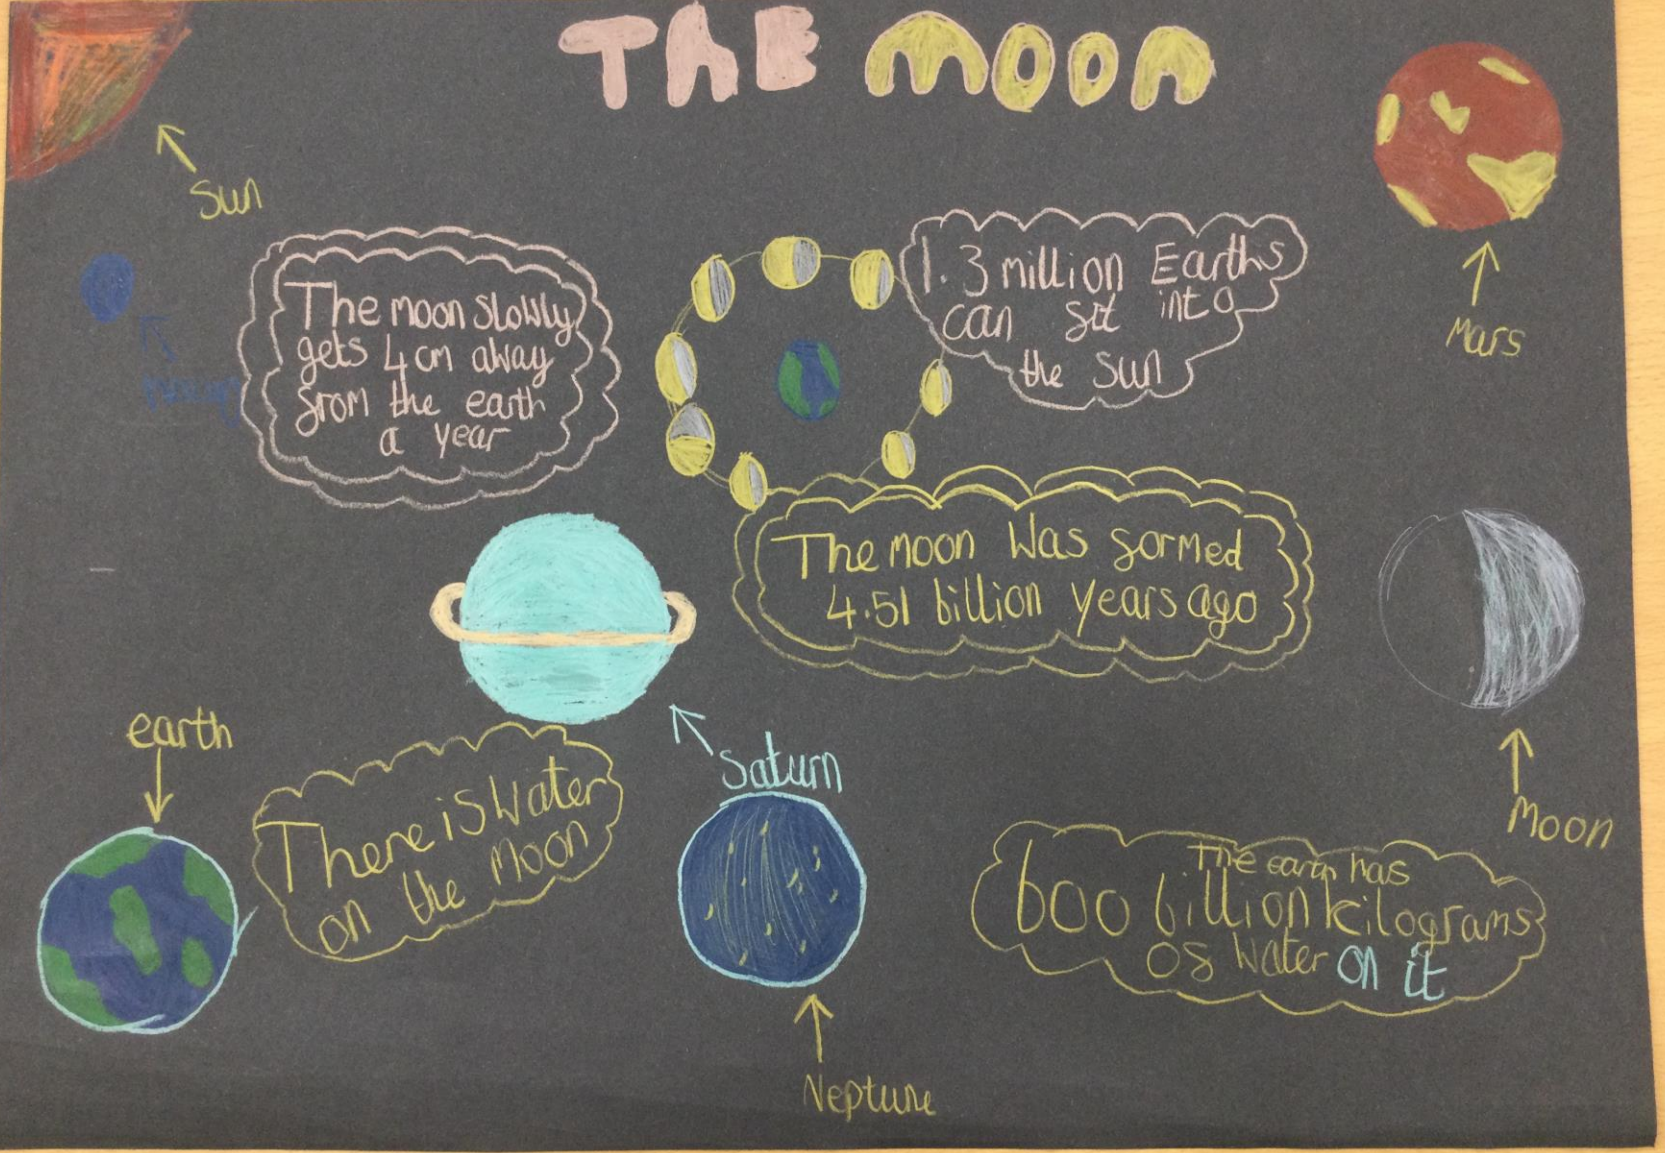 The Moon
Sun
The moon slowly
gets 4 cm away
from the earth
a year
1.3 million Earths
can fit into
the sun
Mars
The moon was formed
4.51 billion years ago
Moon
Saturn
earth
There is water
on the moon
Neptune
The earth has
600 billion kilograms
of water on it